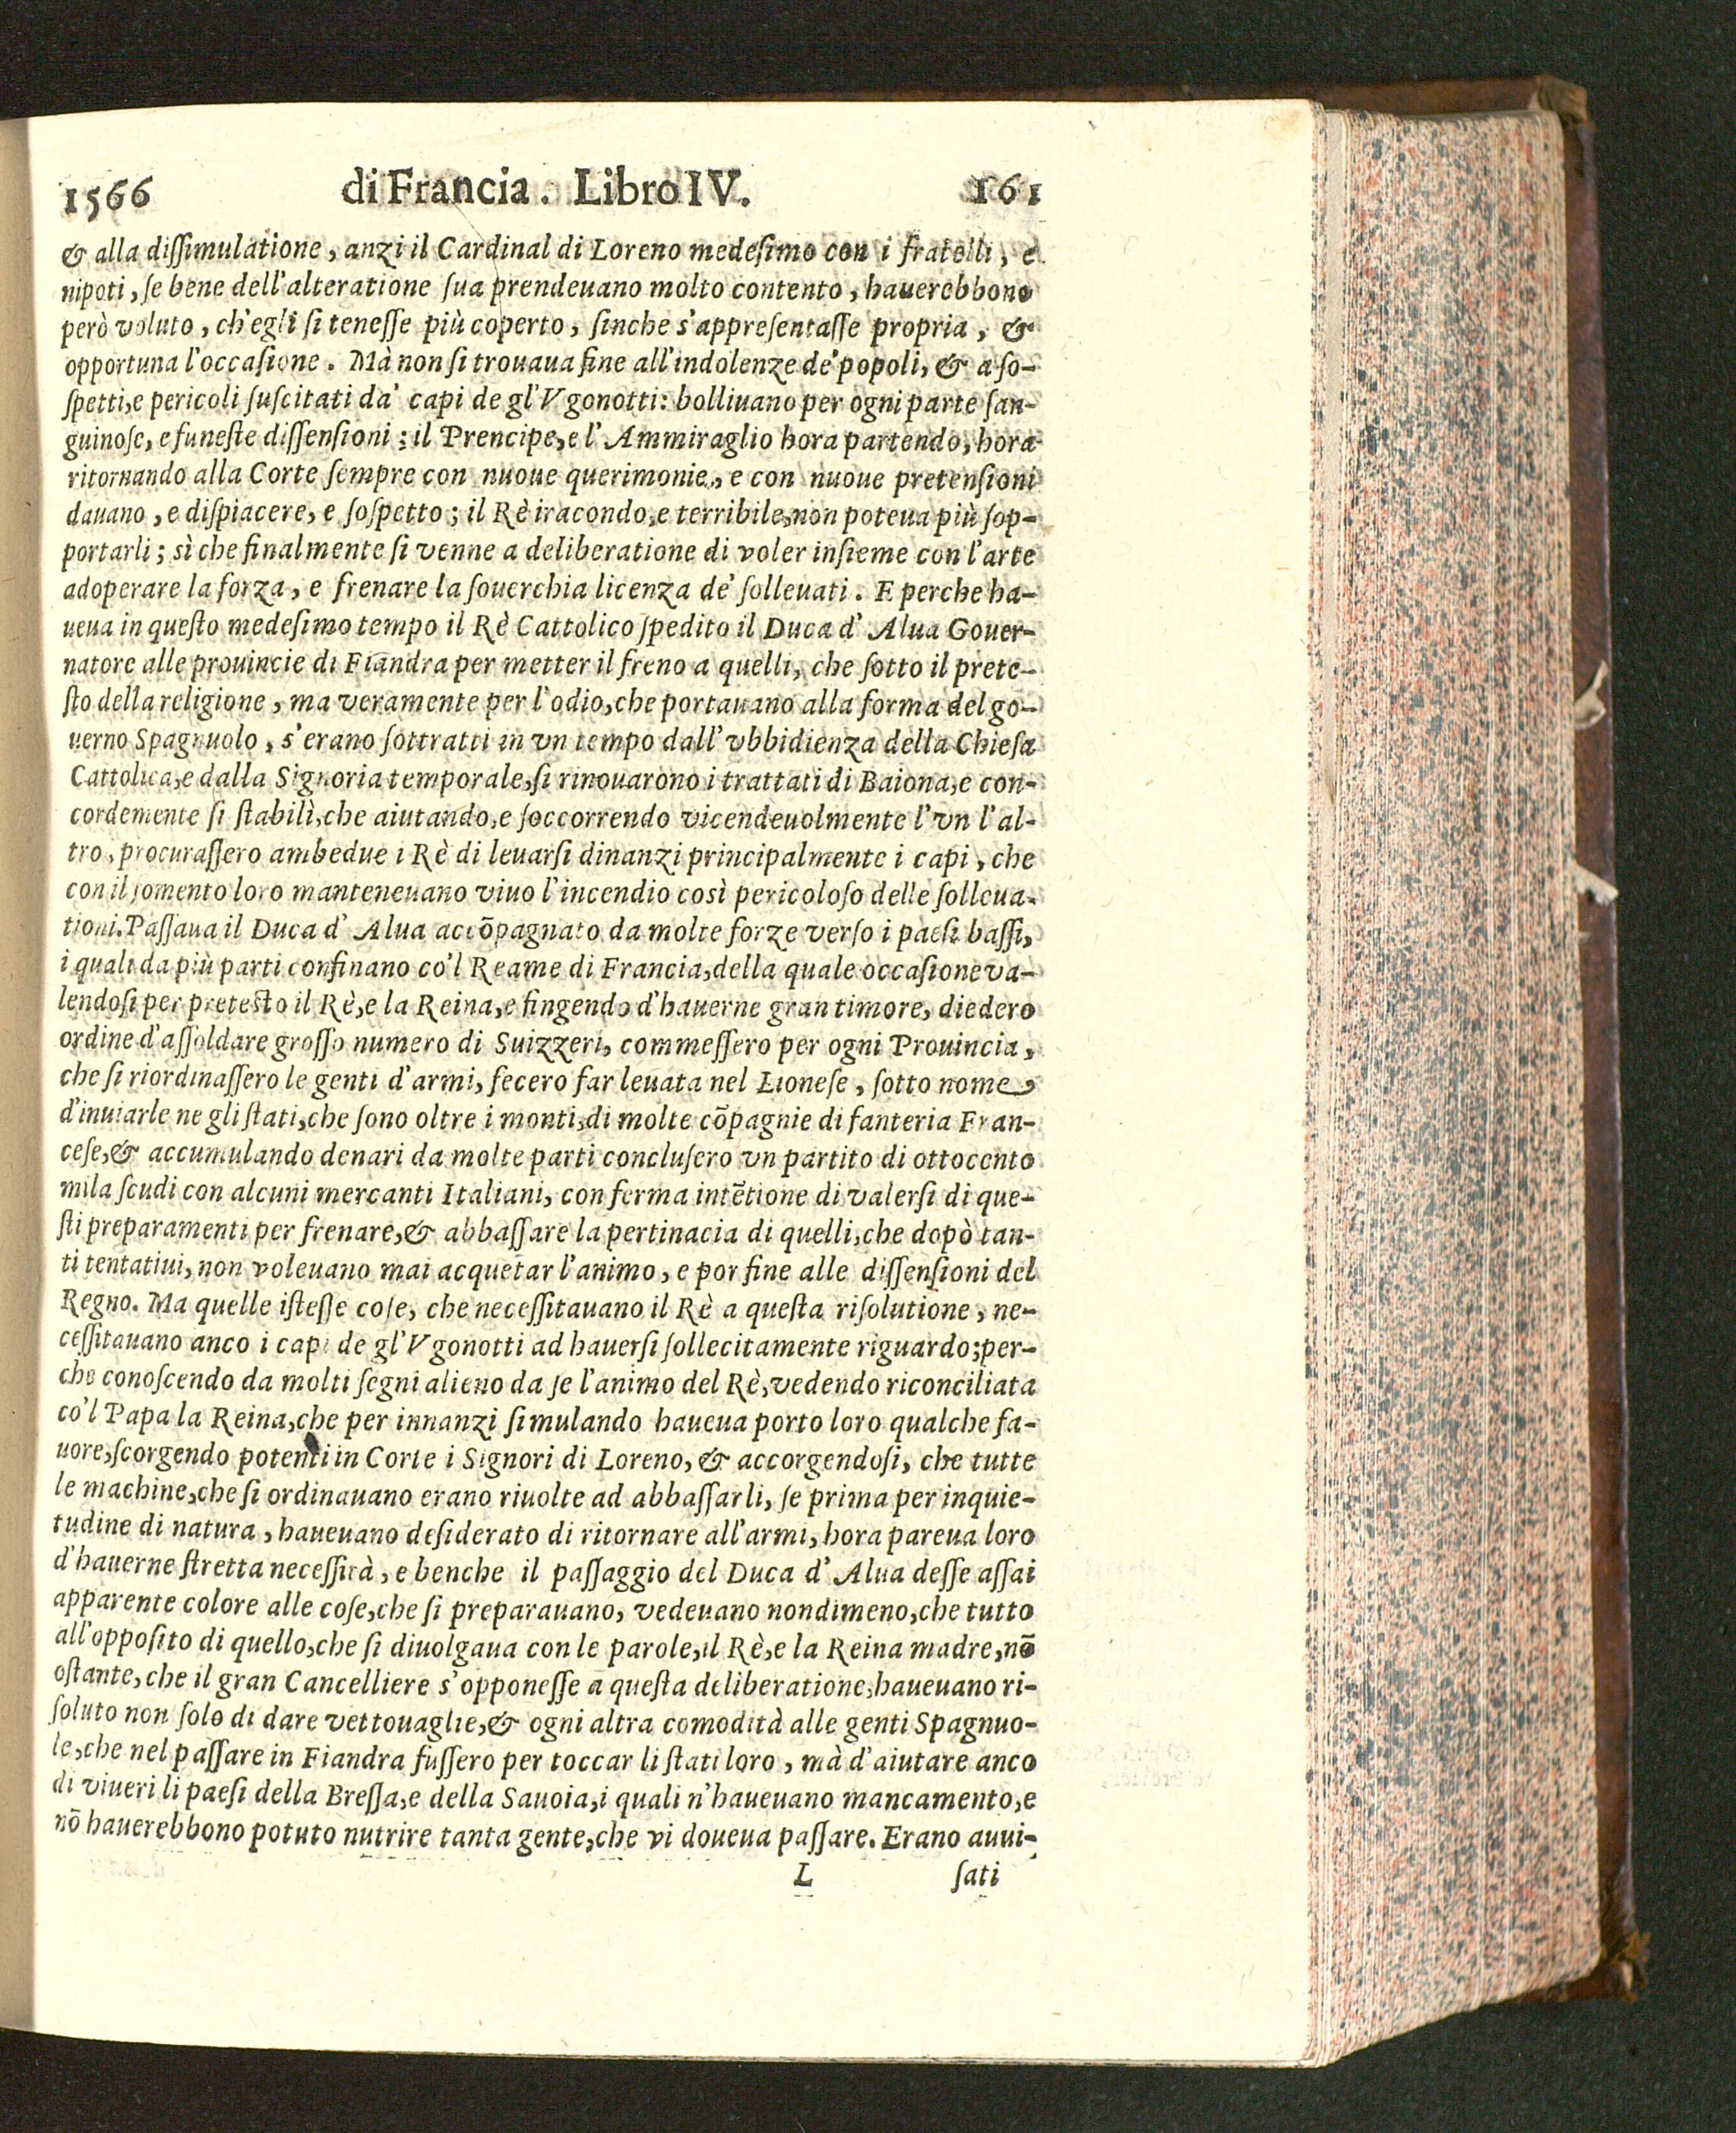 1566 di Francia. Libro IV. 161
& alla dissimulatione, anzi il Cardinal di Loreno medesimo con i fratelli, e
nipoti, se bene dell'alteratione sua prendeuano molto contento, hauerebbono
però voluto, ch'egli si tenesse più coperto, sinche s'appresentasse propria, &
opportuna l'occasione. Mà non si trouaua fine all'indolenze de' popoli, & a so-
spetti, e pericoli suscitati da' capi de gl'Vgonotti: bolliuano per ogni parte san-
guinose, e funeste dissensioni; il Prencipe, e l'Ammiraglio hora partendo, hora
ritornando alla Corte sempre con nuoue querimonie, e con nuoue pretensioni
dauano, e dispiacere, e sospetto; il Rè iracondo, e terribile, non poteua più sop-
portarli; sì che finalmente si venne a deliberatione di voler insieme con l'arte
adoperare la forza, e frenare la souerchia licenza de' solleuati. E perche ha-
ueua in questo medesimo tempo il Rè Cattolico spedito il Duca d'Alua Gouer-
natore alle prouincie di Fiandra per metter il freno a quelli, che sotto il prete-
sto della religione, ma veramente per l'odio, che portauano alla forma del go-
uerno Spagnuolo, s'erano sottratti in vn tempo dall'vbbidienza della Chiesa
Cattolica, e dalla Signoria temporale, si rinouarono i trattati di Baiona, e con-
cordemente si stabilì, che aiutando, e soccorrendo vicendeuolmente l'vn l'al-
tro, procurassero ambedue i Rè di leuarsi dinanzi principalmente i capi, che
con il fomento loro manteneuano viuo l'incendio così pericoloso delle solleua-
tioni. Passaua il Duca d'Alua accõpagnato da molte forze verso i paesi bassi,
i quali da più parti confinano co'l Reame di Francia, della quale occasione va-
lendosi per pretesto il Rè, e la Reina, e fingendo d'hauerne gran timore, diedero
ordine d'assoldare grosso numero di Suizzeri, commessero per ogni Prouincia,
che si riordinassero le genti d'armi, fecero far leuata nel Lionese, sotto nome
d'inuiarle ne gli stati, che sono oltre i monti, di molte cõpagnie di fanteria Fran-
cese, & accumulando denari da molte parti conclusero vn partito di ottocento
mila scudi con alcuni mercanti Italiani, con ferma intẽtione di valersi di que-
sti preparamenti per frenare, & abbassare la pertinacia di quelli, che dopò tan-
ti tentatiui, non voleuano mai acquetar l'animo, e por fine alle dissensioni del
Regno. Ma quelle istesse cose, che necessitauano il Rè a questa risolutione, ne-
cessitauano anco i capi de gl'Vgonotti ad hauersi sollecitamente riguardo; per-
che conoscendo da molti segni alieno da se l'animo del Rè, vedendo riconciliata
co'l Papa la Reina, che per innanzi simulando haueua porto loro qualche fa-
uore, scorgendo potenti in Corte i Signori di Loreno, & accorgendosi, che tutte
le machine, che si ordinauano erano riuolte ad abbassarli, se prima per inquie-
tudine di natura, haueuano desiderato di ritornare all'armi, hora pareua loro
d'hauerne stretta necessità, e benche il passaggio del Duca d'Alua desse assai
apparente colore alle cose, che si preparauano, vedeuano nondimeno, che tutto
all'opposito di quello, che si diuolgaua con le parole, il Rè, e la Reina madre, nõ
ostante, che il gran Cancelliere s'opponesse a questa deliberatione, haueuano ri-
soluto non solo di dare vettouaglie, & ogni altra comodità alle genti Spagnuo-
le, che nel passare in Fiandra fussero per toccar li stati loro, mà d'aiutare anco
di viueri li paesi della Bressa, e della Sauoia, i quali n'haueuano mancamento, e
nõ hauerebbono potuto nutrire tanta gente, che vi doueua passare. Erano auui-
L sati